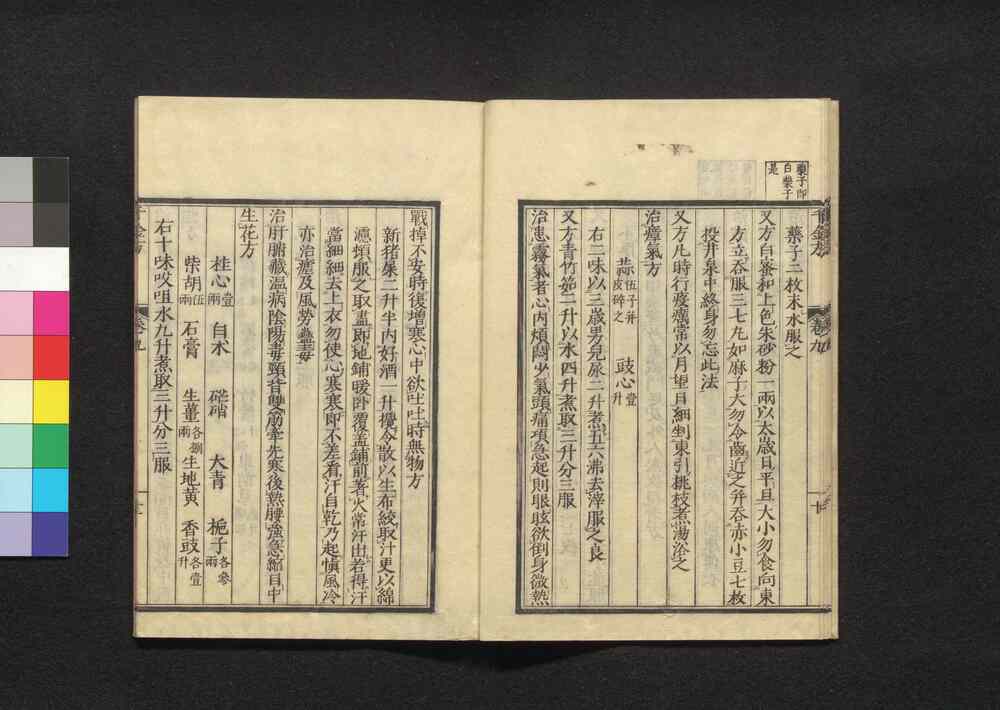 藥子即
白藥子
是
千金方
卷九
十
藥子二枚末水服之
又方白蜜和上色朱砂粉一兩以太歲日平旦大小勿食向東
方立吞服三七丸如麻子大勿令齒近之并吞赤小豆七枚
投井泉中終身勿忘此法
又方凡時行疫癘常以月望日細剉東引桃枝煮湯浴之
治瘴氣方
蒜伍子并皮碎之 豉心壹升
右二味以三歲男兒尿二升煮五六沸去滓服之良
又方青竹茹二升以水四升煮取三升分三服
治患霧氣者心內煩悶少氣頭痛項急起則眼眩欲倒身微熱
戰掉不安時復增寒心中欲吐吐時無物方
新猪屎二升半內好酒一升攪令散以生布絞取汁更以綿
濾頓服之取盡即地鋪暖卧覆蓋鋪前著火常汗出若得汗
當細細去上衣勿使心寒寒即不差看汗自乾乃起慎風冷
亦治瘧及風勞蠱毒
治肝腑臟溫病陰陽毒頸背雙筋牽先寒後熱腰強急縮目中
生花方
桂心壹兩 白术 芒硝 大青 梔子各參兩
柴胡伍兩 石膏 生薑各捌兩 生地黃 香豉各壹升
右十味㕮咀水九升煮取三升分三服
千金方
卷九